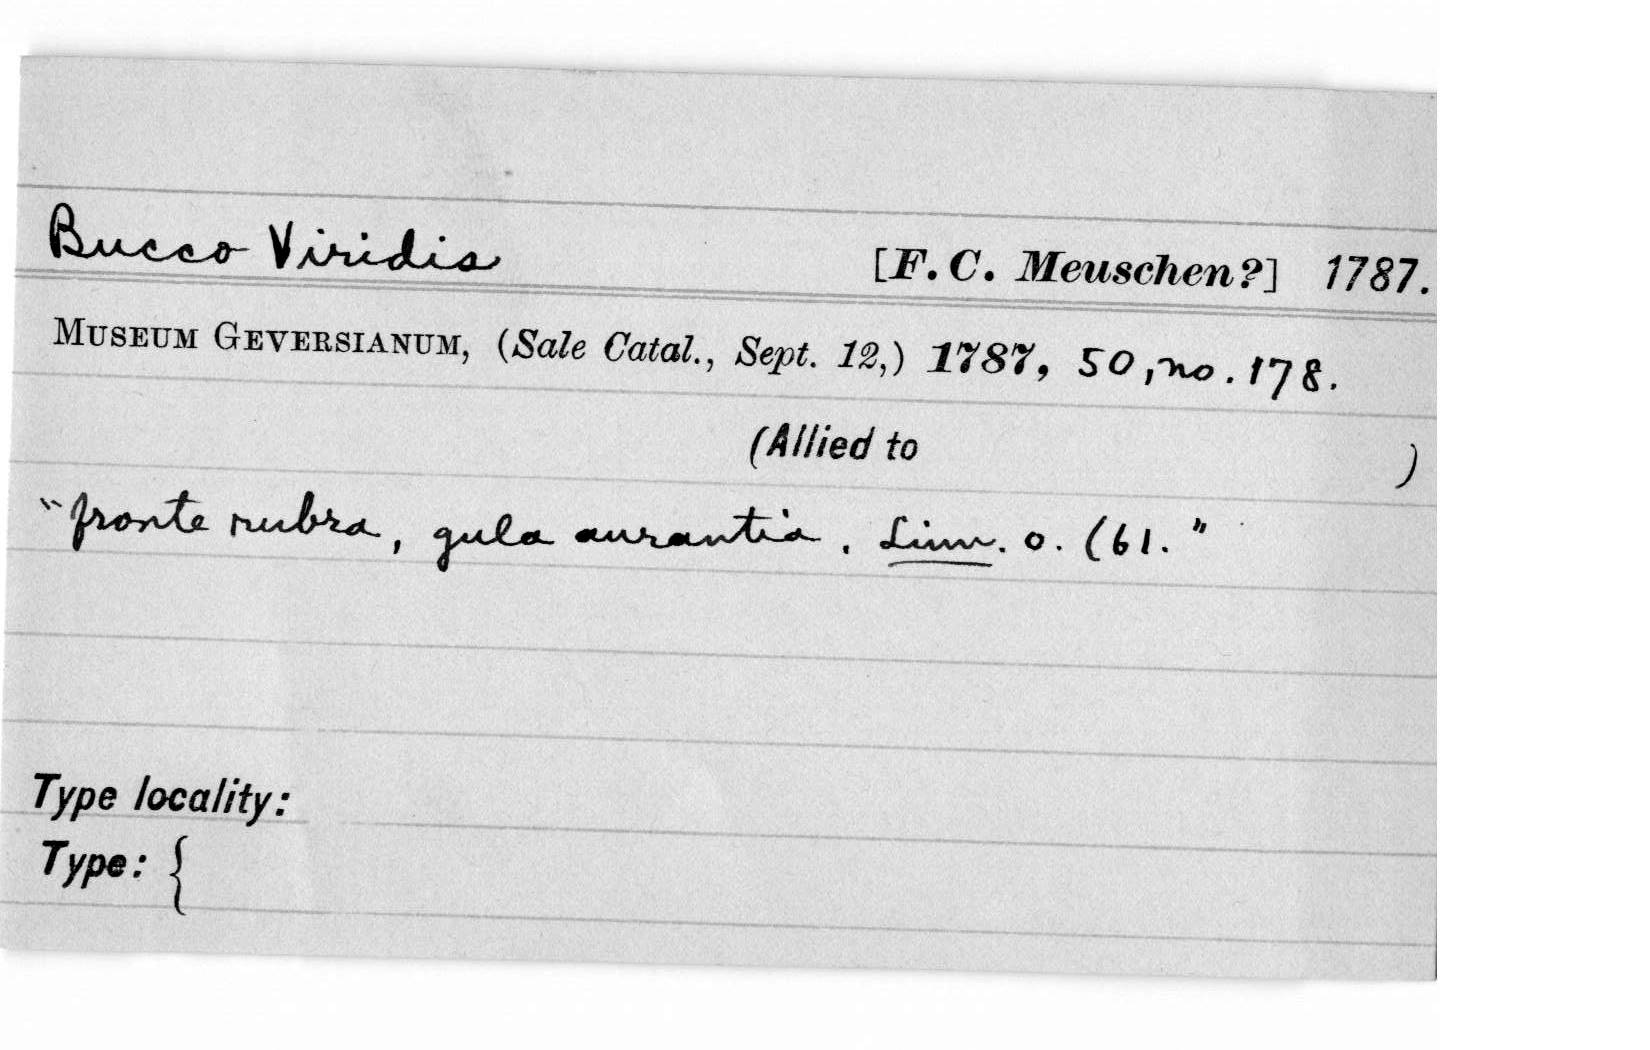 Bucco Viridis [F. C. Meuschen?] 1787.
MUSEUM GEVERSIANUM, (Sale Catal., Sept. 12,) 1787, 50, no. 178.
(Allied to )
"fronte rubra, gula aurantia. Linn. o. (61."
Type locality:
Type: {